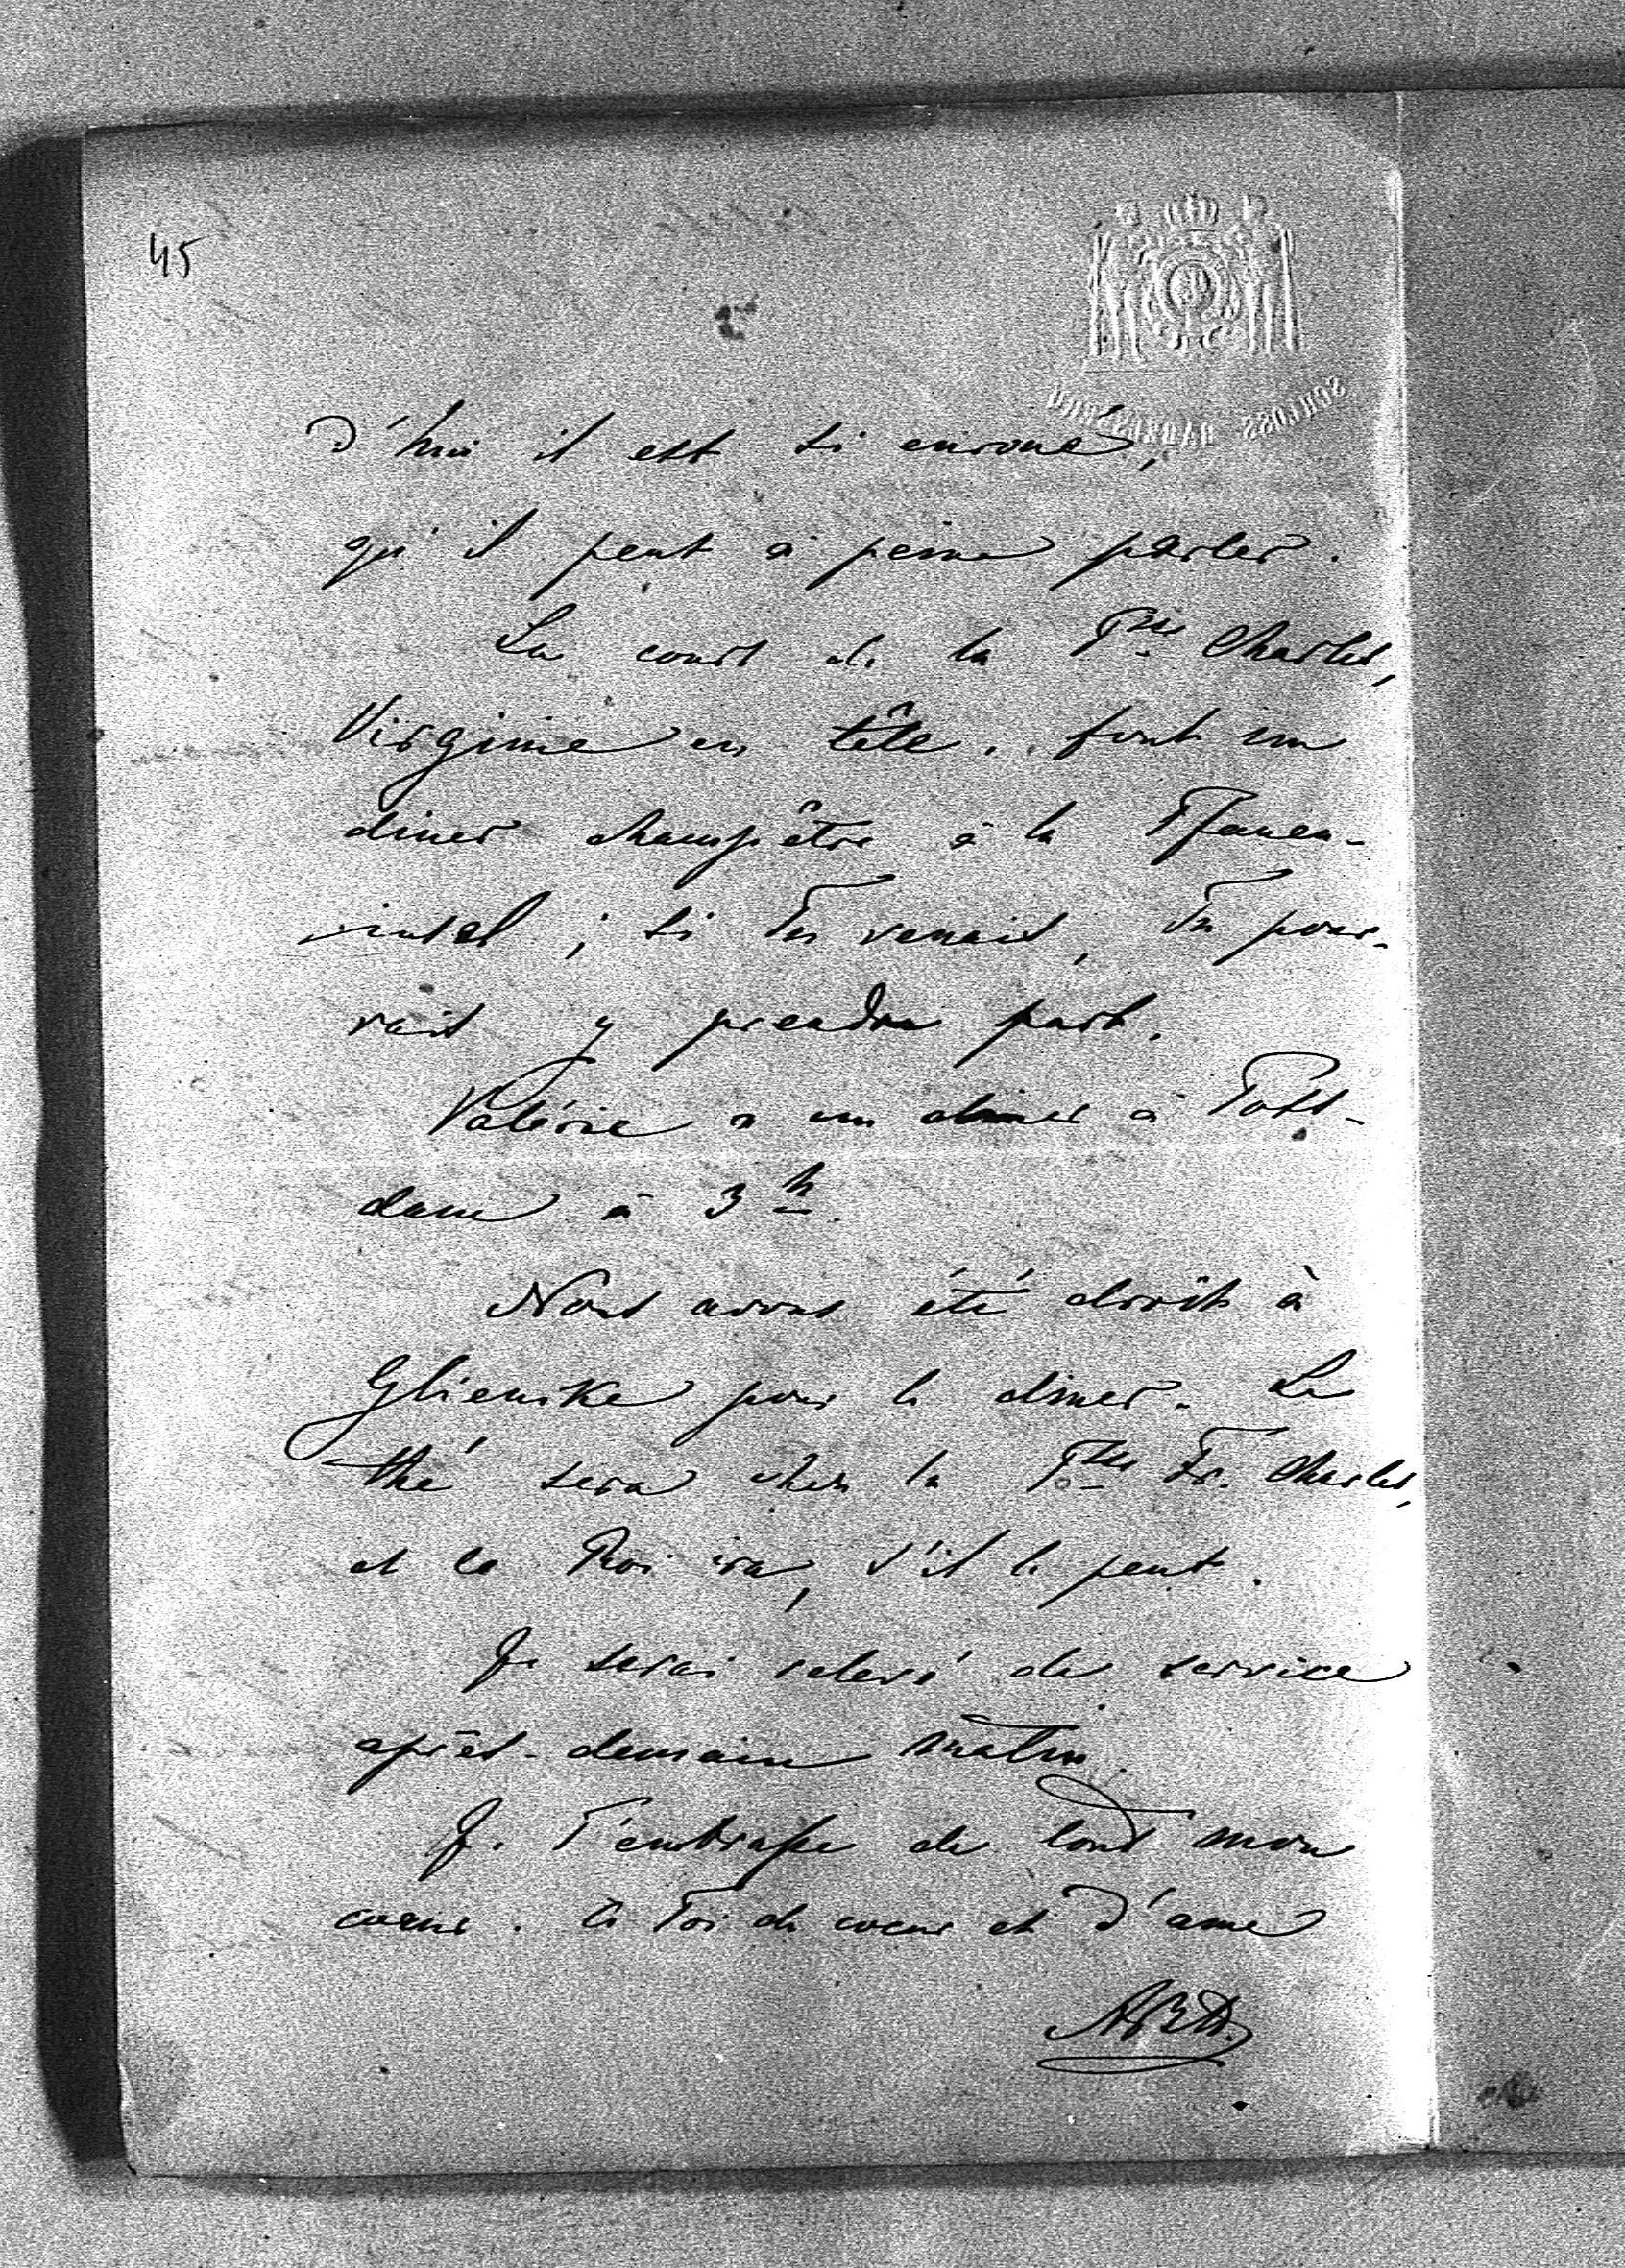 45
SCHLOSS BABELSBERG
d'hui il est si enroué,
qu'il peut à peine parler.
La court de la Psse Charles,
Virginie en tête.. font un
diner champêtre à la Pfauen-
insel; si Tu venais, Tu pour-
rais y prendre part.
Valérie a un diner à Pots-
dam à 3 h.
Nous avons été droit à
Glienike pour le diner. Le
thé sera chez la Psse Fr. Charles,
et le Roi ira, s'il le peut.
Je serai relevé de service
après-demain matin.
Je T'embrasse de tout mon
coeur. à Toi de coeur et d'ame